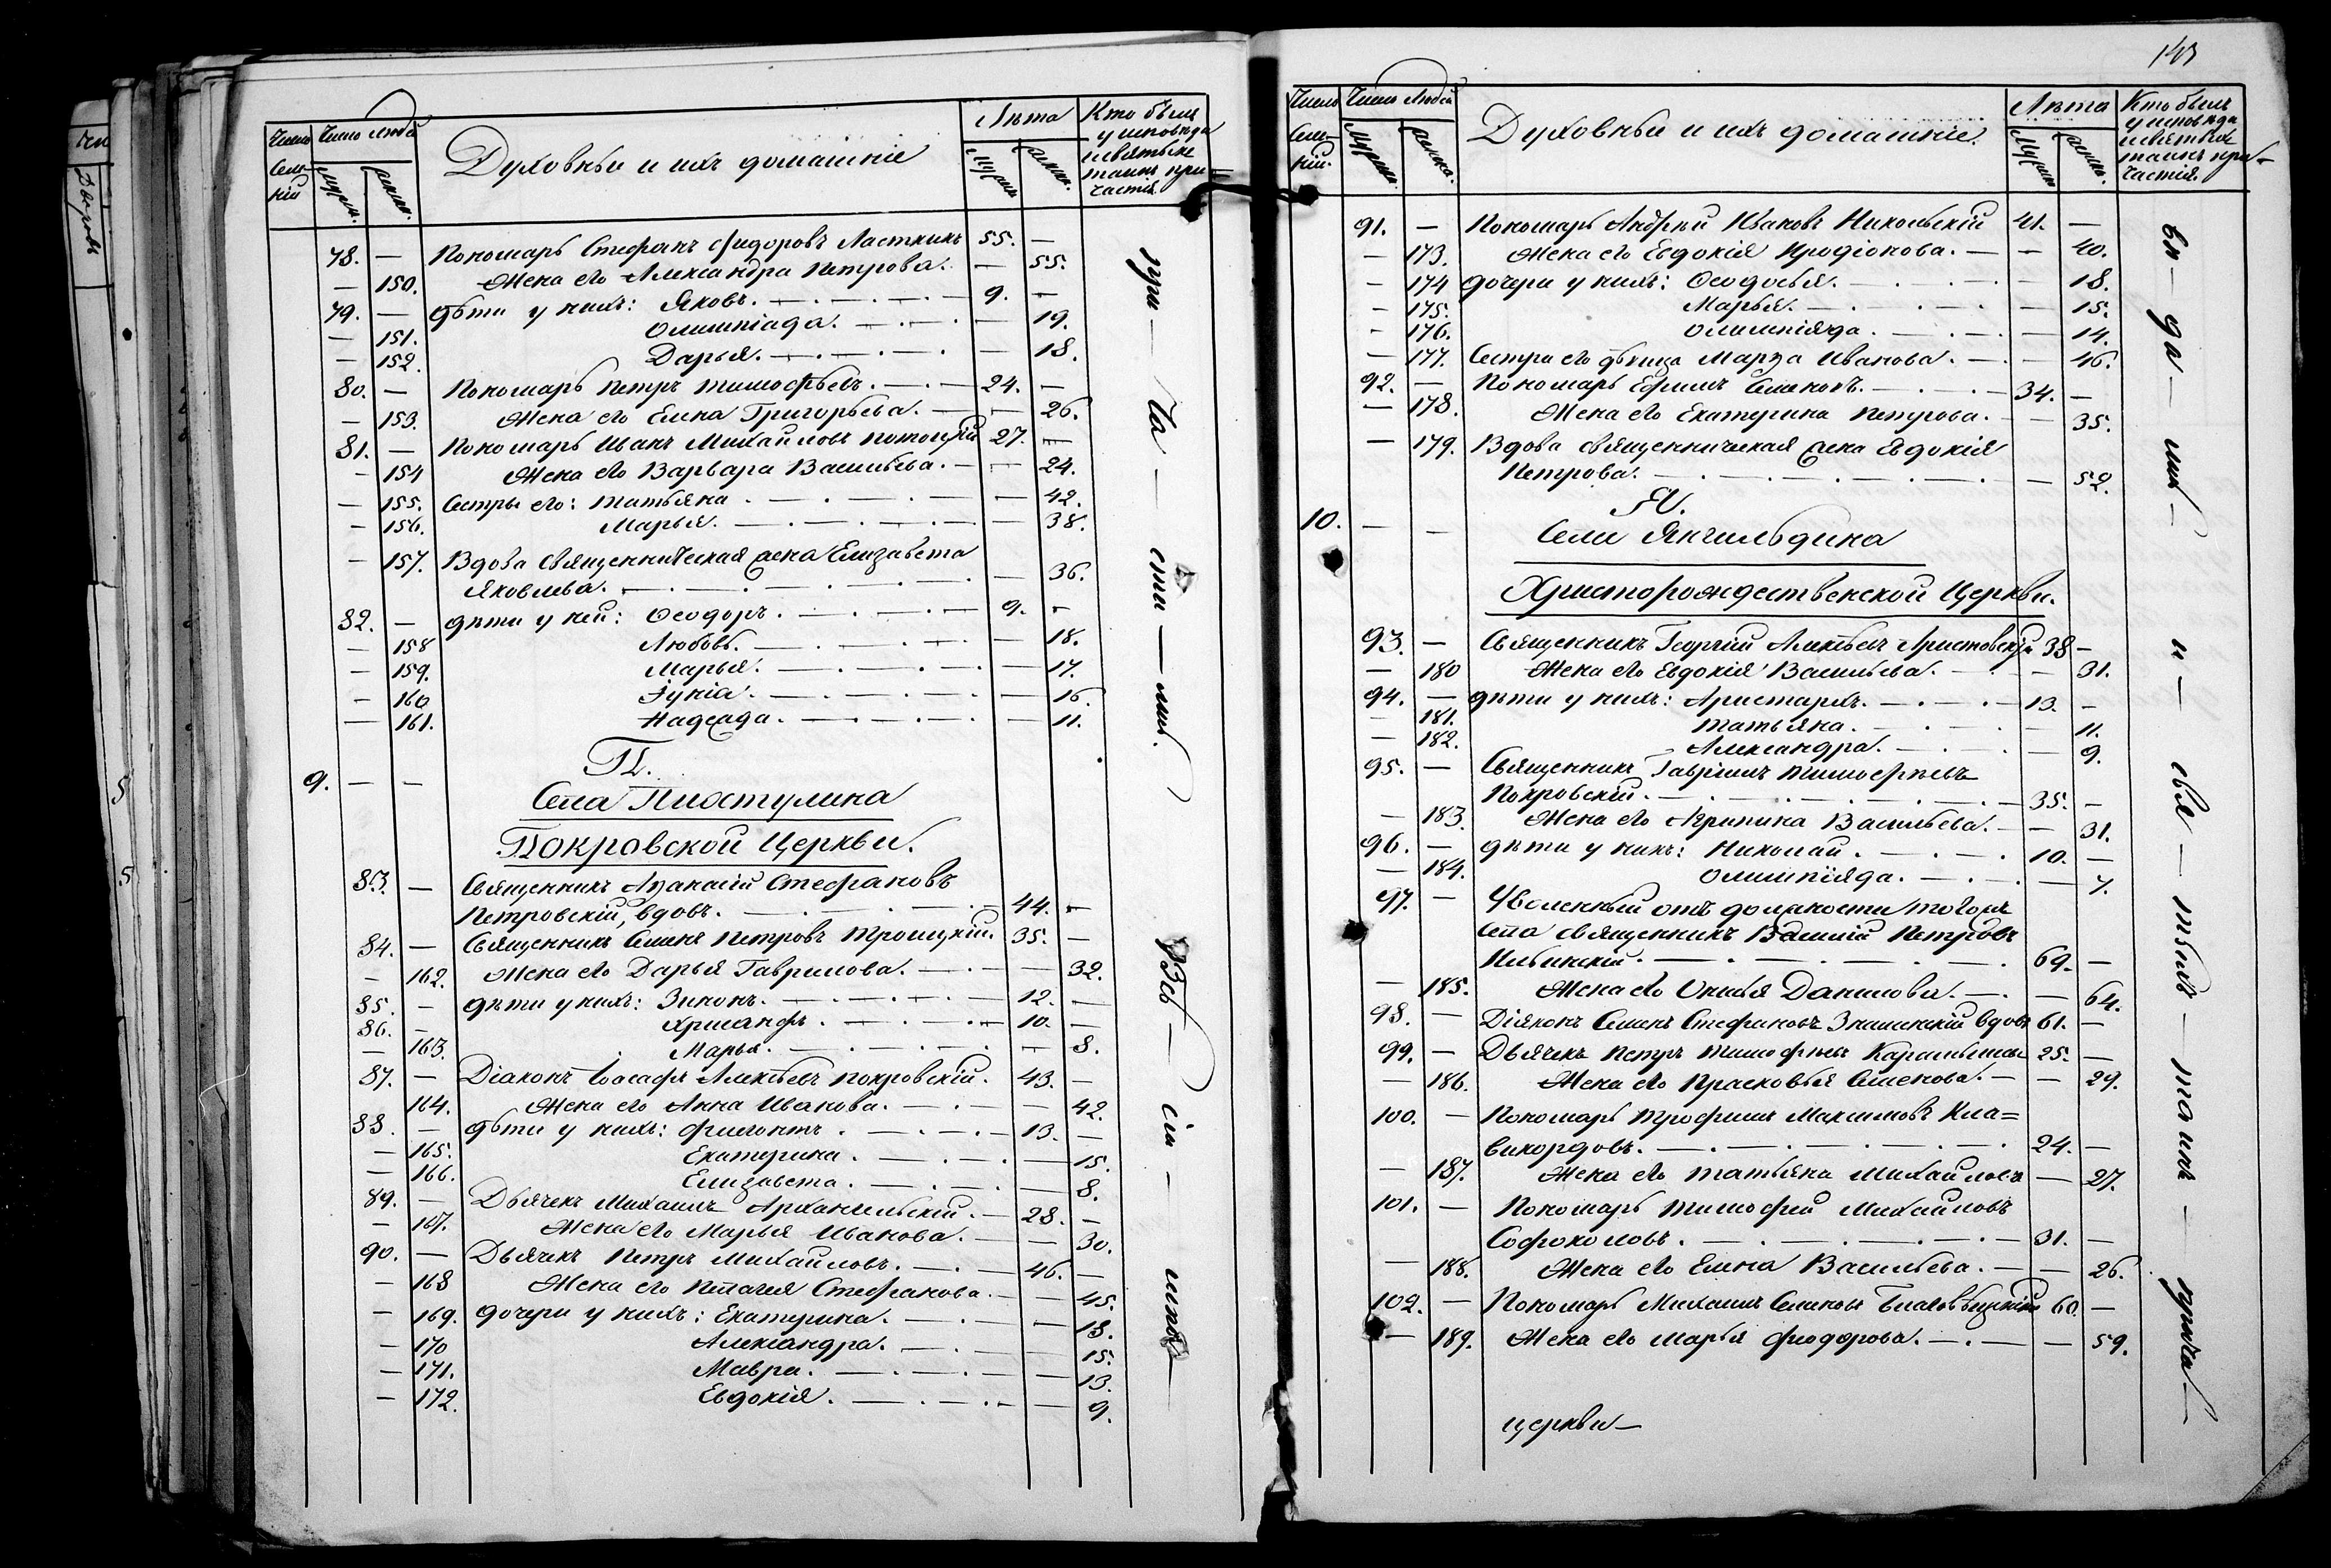 Число Число людей Духовныи и ихъ домашніе Лѣта Кто былъ
у исповѣди
Сель- и святыхъ
кій мужеск. женск. мужск. женск. таинъ при-
частія.
78. — Пономарь Стефанъ Фидоровъ Ласткинъ 55. —
— 150. Жена его Александра Петрова. — 55.
79. — дѣти у нихъ: Яковъ. 9. —
— 151. Олимпіада. — 19.
— 152. Дарья. — 18.
80. — Пономарь Петръ Тимофѣевъ. 24. —
— 153. Жена его Елена Григорьева. — 26.
81. — Пономарь Иванъ Михайловъ 27. —
— 154 Жена его Варвара Васильева. — 24.
— 155. Сестры его: Татьяна — 42.
— 156. Марья. — 38.
— 157. Вдова священническая жена Елизавета
Яковлева. — 36.
82. — дѣти у ней: Ѳеодоръ. 9. —
— 158 Любовь. — 18.
— 159. Марья. — 17.
— 160 — 16.
— 161. Надежда. — 11.
9. — —
Села
Покровской Церкви.
83. — Священникъ Аѳанасій Стефановъ
Петровскій, вдовъ. 44. —
84. — Священникъ Семенъ Петровъ Троицкій. 35. —
— 162. Жена его Дарья Гаврилова. — 32.
85. — дѣти у нихъ: Зинонъ. 12. —
86. — Хрисанфъ. 10. —
— 163. Марья. — 8.
87. — Діаконъ Іоасафъ Алексѣевъ Покровскій. 43. —
164. Жена его Анна Иванова. — 42.
88. — дѣти у нихъ: Филонтъ. 13. —
— 165. Екатерина. — 15.
— 166. Елизавета. — 8.
89. — Дьячекъ Михаилъ Архангельскій. 28. —
— 167. Жена его Марья Иванова. — 30.
90. — Дьячекъ Петръ Михайловъ. 46. —
— 168 Жена его Пелагея Стефанова. — 45.
— 169. дочери у нихъ: Екатерина. — 18.
— 170 Александра. — 15.
— 171. Мавра. — 13.
— 172. Евдокія. — 9.
при — ча — сти — лись.
Всѣ —
143
Число Число людей Духовныи и ихъ домашніе. Лѣта Кто былъ
у исповѣди
Сель- и святыхъ
кій. мужеск. женска. мужск. женск. таинъ при-
частія.
91. — Пономарь Андрей Ивановъ Никольскій 41. —
— 173. Жена его Евдокія Иродіонова. — 40.
— 174 дочери у нихъ: Ѳеодосья. — 18.
— 175. Марья. — 15.
— 176. Олимпіада. — 14.
— 177. Сестра его дѣвица Марѳа Иванова. — 46.
92. — Пономарь Ефимъ Семеновъ. 34. —
— 178. Жена его Екатерина Петрова. — 35.
— 179. Вдова священническая жена Евдокія
Петрова. — 52.
10. — —
Села Янгильдина
Христорождественской Церкви.
93. — Священникъ Георгій Алексѣевъ Аристовскій 38 —
— 180 Жена его Евдокія Васильева. — 31.
94. — дѣти у нихъ: Аристархъ. 13. —
— 181. Татьяна. — 11.
— 182. Александра. — 9.
95. — Священникъ Гавріилъ Тимофѣевъ
Покровскій. 35. —
— 183. Жена его Агрипина Васильева. — 31.
96. — дѣти у нихъ: Николай. 10. —
— 184. Олимпіяда. — 7.
97. — Уволенный отъ должности того же
села священникъ Василій Петровъ
Ильинскій. 69. —
— 185. Жена его Данилова. — 64.
98. — Діяконъ Семенъ Стефановъ Знаменскій вдовъ 61. —
99. — Дьячекъ Петръ Тимофѣевъ 25. —
— 186. Жена его Прасковья Семенова. — 29.
100. — Пономарь Трофимъ Максимовъ Кла=
викордовъ. 24. —
— 187. Жена его Татьяна Михайлова — 27.
101. — Пономарь Тимофей Михайловъ
Софокловъ. 31. —
— 188. Жена его Елена Васильева. — 26.
102. — Пономарь Михаилъ Семеновъ Благовѣщенскій 60. —
— 189. Жена его Марья Феодорова. — 59.
церкви —